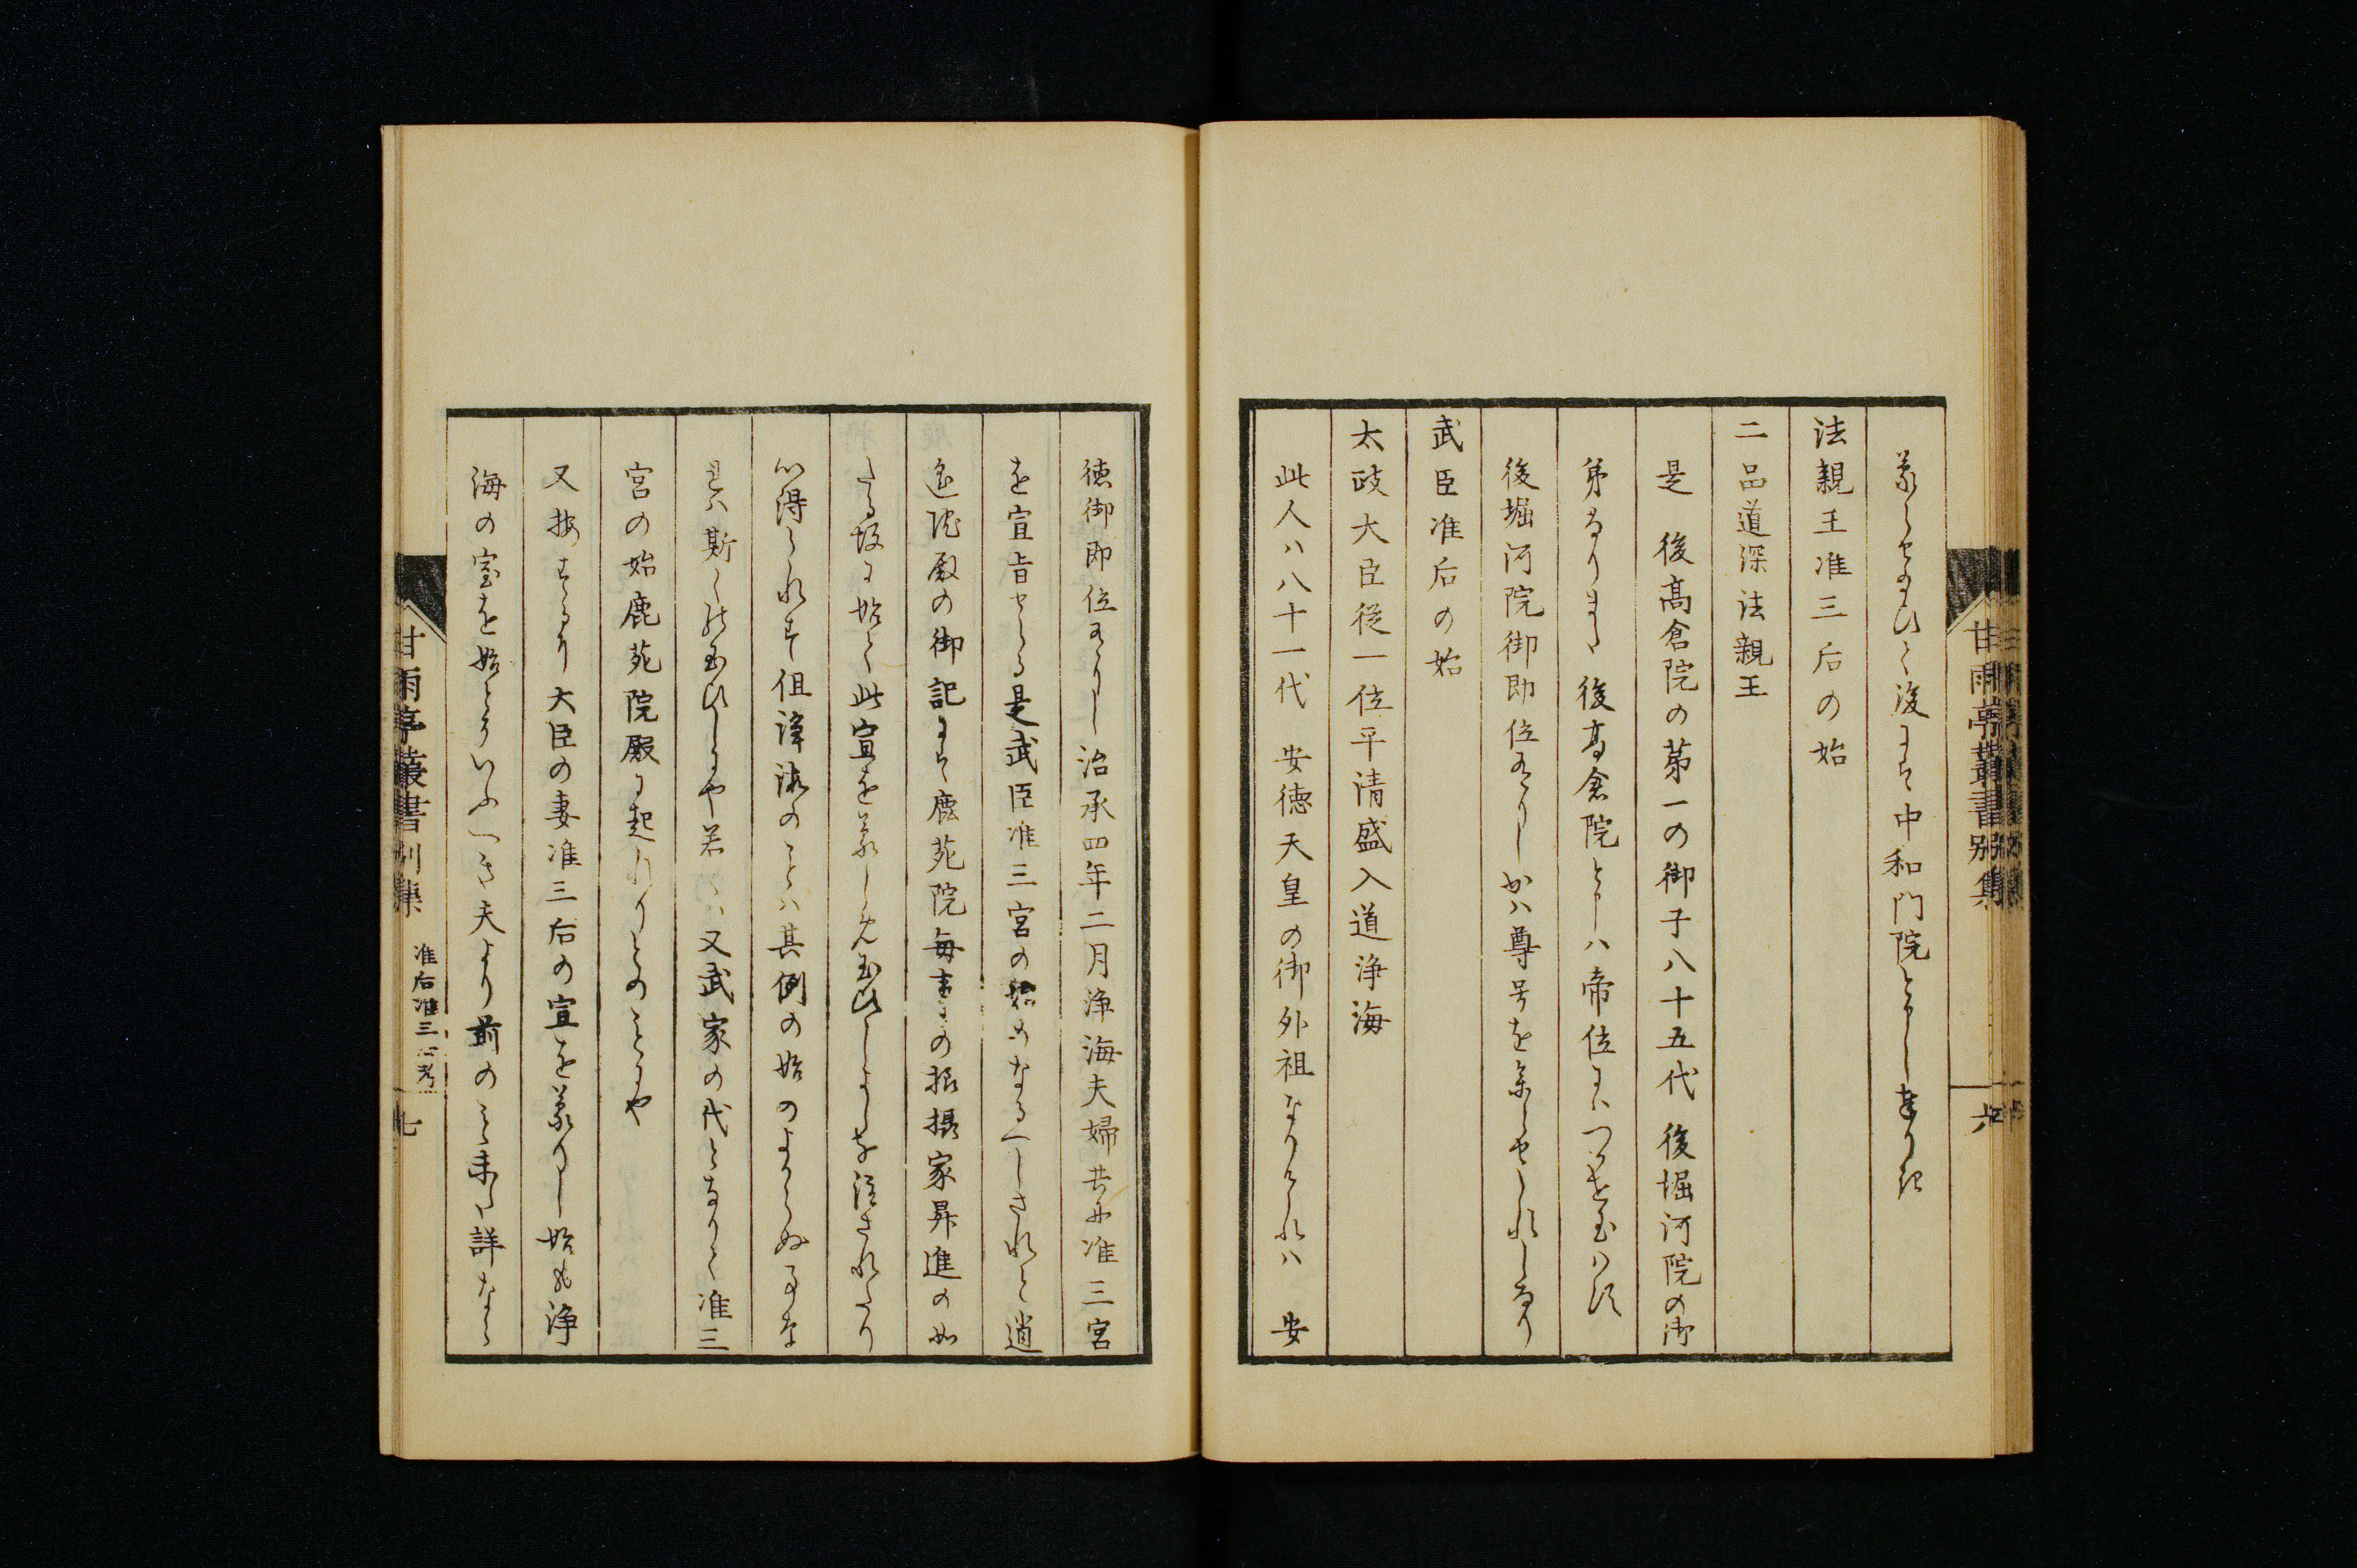 蒙らせ給ひて後には中和門院と申し奉りき
法親王准三后の始
二品道深法親王
是 後髙倉院の第一の御子八十五代 後堀河院の御
弟なりまた 後髙倉院と申ハ帝位にハつき玉ハす
後堀河院御即位有りしかハ尊号を奉らせられしなり
武臣准后の始
太政大臣従一位平清盛入道浄海
此人ハ八十一代 安徳天皇の御外祖なりけれハ 安
徳御即位有りし治承四年二月浄海夫婦共に准三宮
を宣旨せらる是武臣准三宮の始めなるへしされと逍
遥院殿の御記には鹿苑院毎事の振摂家昇進の如
たる故に始て此宣を蒙しめ玉ひしよしを注されたり
心得られす但諱源のことハ其例の始のよからぬ事な
れハ斯くは玉ひしにや若ハ又武家の代となりて准三
宮の始鹿苑院殿に起れりとのことにや
又按するに大臣の妻准三后の宣を蒙りし始も浄
海の室を始とそいふへき夫より前のこと未た詳なら
甘雨亭叢書別集 六
甘雨亭叢書別集 准后准三 考 七